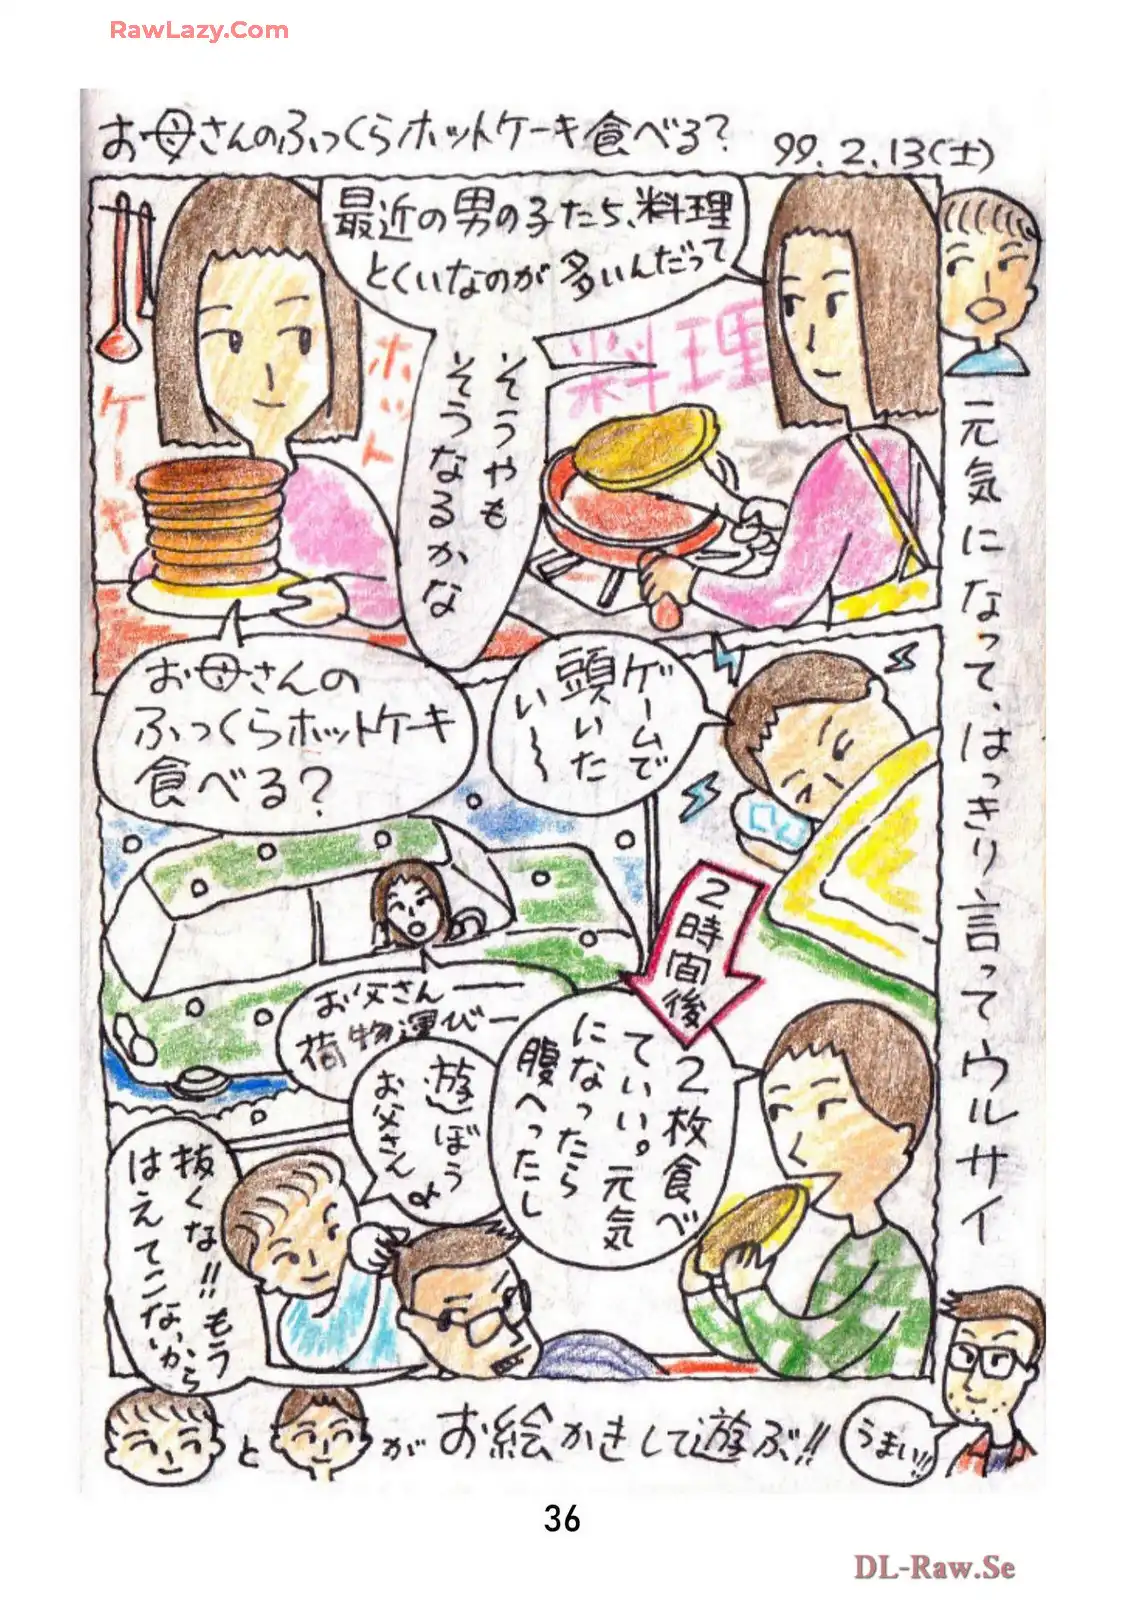 RawLazy.Com
お母さんのふっくらホットケーキ食べる?
99.2.13(土)
最近の男の子たち、料理
とくいなのが多いんだって
料理
そうやも
そうなるかな
ホット
ケーキ
お母さんの
ふっくらホットケーキ
食べる?
ゲームで
頭いた
い〜
2時間後
お父さん——
荷物運び—
2枚食べ
ていい。元気
になったら
腹へったし
遊ぼう
お父さん
抜くな!!もう
はえてこないから
元気になって、はっきり言って、ウルサイ
と
が
お絵かきして遊ぶ!!
うまい!!
36
DL-Raw.Se